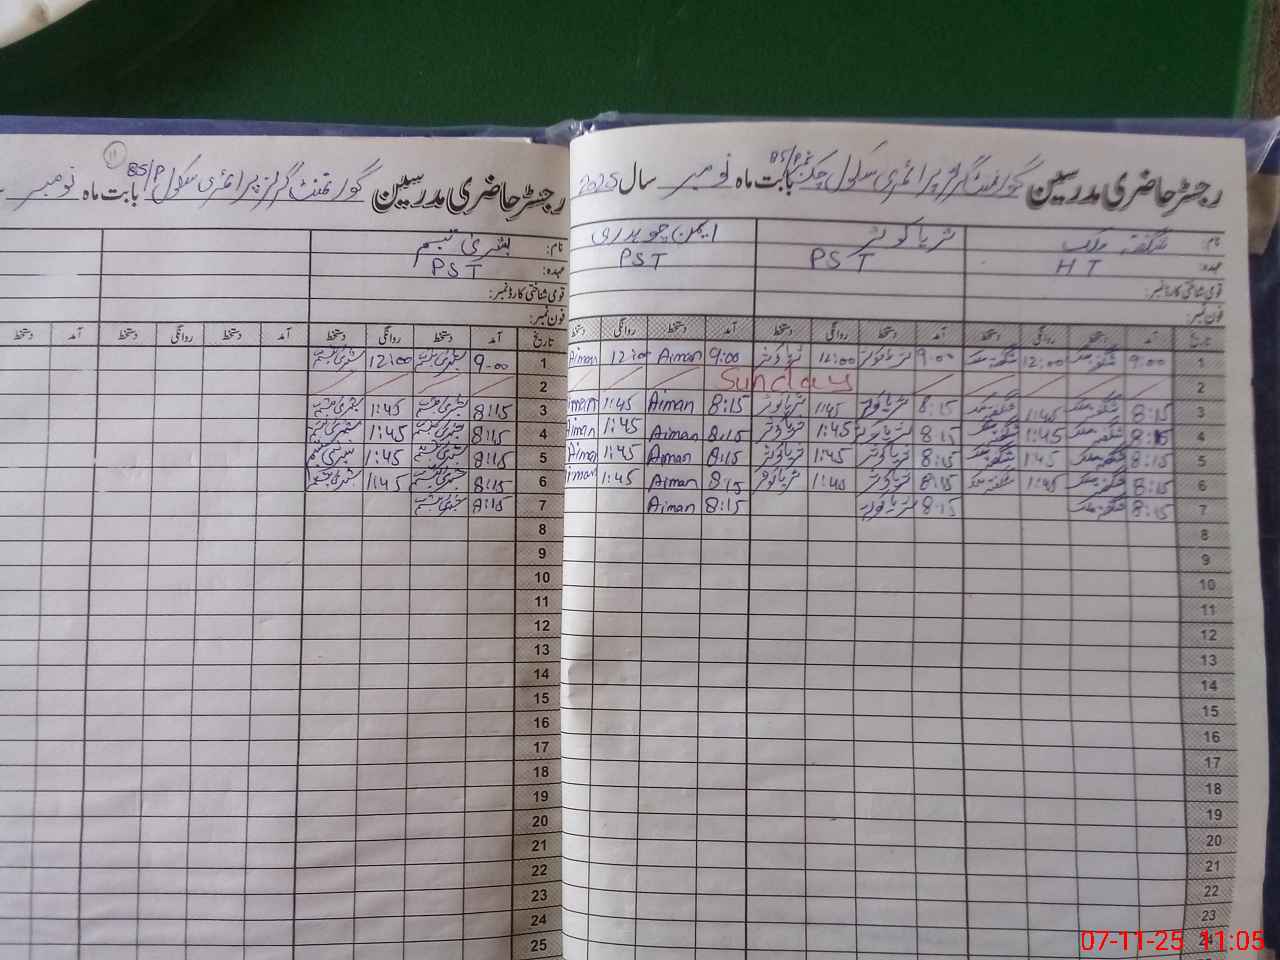 رجسٹر حاضری مدرسین گورنمنٹ گرلز پرائمری سکول بابت ماہ نومبر سال 2025
نام: شگفتہ ملک ثریا کوثر ایمن چوہدری
عہدہ: HT PST PST
قومی شناختی کارڈ نمبر:
فون نمبر:
تاریخ آمد دستخط روانگی دستخط آمد دستخط روانگی دستخط آمد دستخط روانگی دستخط
1 9:00 شگفتہ ملک 12:00 شگفتہ ملک 9:00 ثریا کوثر 12:00 ثریا کوثر 9:00 Aiman 12:00 Aiman
2 Sunday
3 8:15 شگفتہ ملک 1:45 شگفتہ ملک 8:15 ثریا کوثر 1:45 ثریا کوثر 8:15 Aiman 1:45 Aiman
4 8:15 شگفتہ ملک 1:45 شگفتہ ملک 8:15 ثریا کوثر 1:45 ثریا کوثر 8:15 Aiman 1:45 Aiman
5 8:15 شگفتہ ملک 1:45 شگفتہ ملک 8:15 ثریا کوثر 1:45 ثریا کوثر 8:15 Aiman 1:45 Aiman
6 8:15 شگفتہ ملک 1:45 شگفتہ ملک 8:15 ثریا کوثر 1:45 ثریا کوثر 8:15 Aiman 1:45 Aiman
7 8:15 شگفتہ ملک 8:15 ثریا کوثر 8:15 Aiman
8
9
10
11
12
13
14
15
16
17
18
19
20
21
22
23
24
رجسٹر حاضری مدرسین گورنمنٹ گرلز پرائمری سکول BS/P بابت ماہ نومبر
11
نام: بشریٰ تبسم
عہدہ: PST
قومی شناختی کارڈ نمبر:
فون نمبر:
تاریخ آمد دستخط روانگی دستخط آمد دستخط روانگی دستخط آمد دستخط
1 9:00 بشریٰ تبسم 12:00 بشریٰ تبسم
2
3 8:15 بشریٰ تبسم 1:45 بشریٰ تبسم
4 8:15 بشریٰ تبسم 1:45 بشریٰ تبسم
5 8:15 بشریٰ تبسم 1:45 بشریٰ تبسم
6 8:15 بشریٰ تبسم 1:45 بشریٰ تبسم
7 8:15 بشریٰ تبسم
8
9
10
11
12
13
14
15
16
17
18
19
20
21
22
23
24
25
07-11-25 11:05